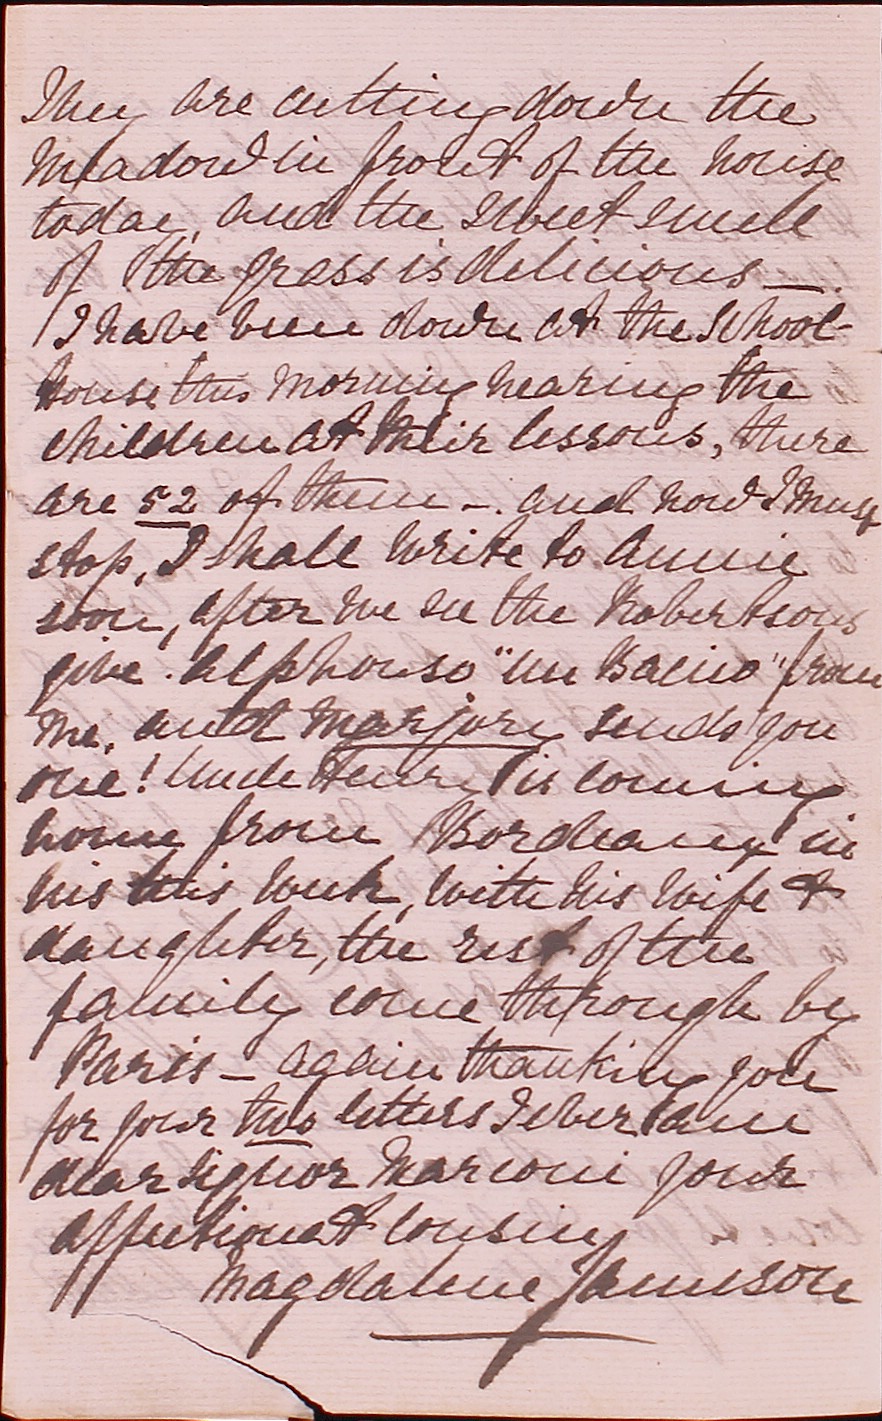 They are cutting down the
meadow in front of the house
today, and the sweet smell
of the grass is delicious —.
I have been down at the School-
house this morning hearing the
children at their lessons, there
are 52 of them —. and now I must
stop, I shall write to Annie
soon, after we see the Robertsons
give Alphonso "un Bacio" from
me, and Marjory sends you
one! Uncle Henry is coming
home from Bordeaux in
his this week, with his wife &
daughter, the rest of the
family come through by
Paris — again thanking you
for your two letters I ever am
dear Signor Marconi your
affectionat cousin
Magdalene Jameson